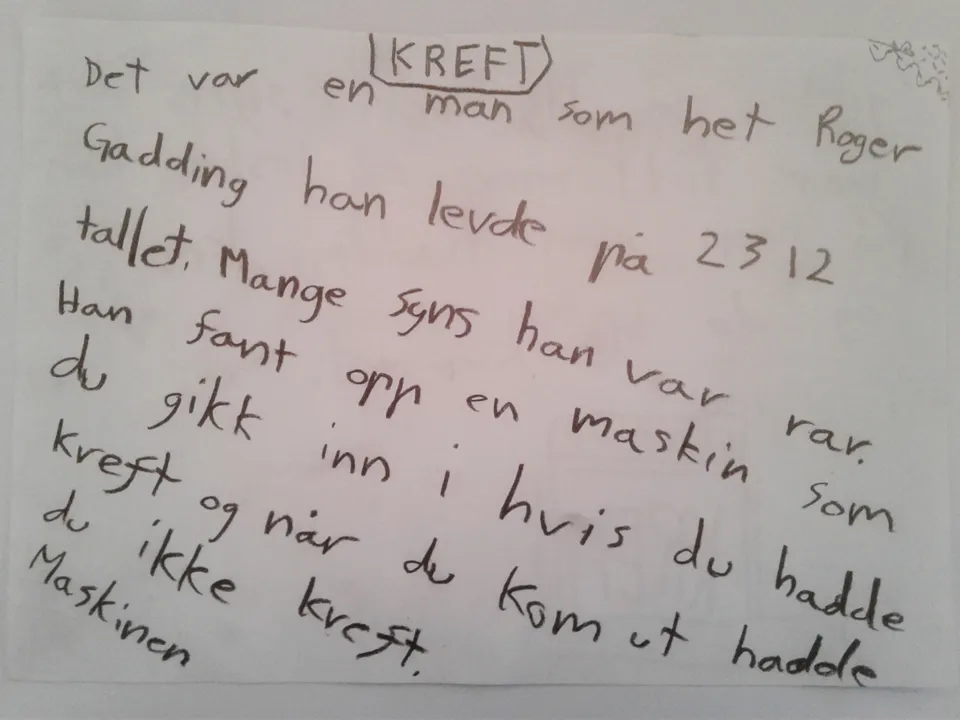 KREFT
Det var en man som het Roger
Gadding han levde på 2312
tallet. Mange syns han var rar.
Han fant opp en maskin som
du gikk inn i hvis du hadde
kreft og når du kom ut hadde
du ikke kreft.
Maskinen